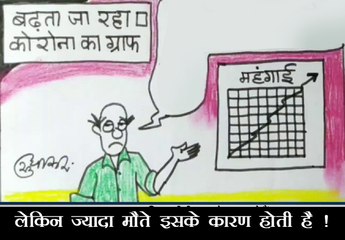 बढ़ता जा रहा
कोरोना का ग्राफ
महंगाई
सुधाकर
लेकिन ज्यादा मौते इसके कारण होती है !